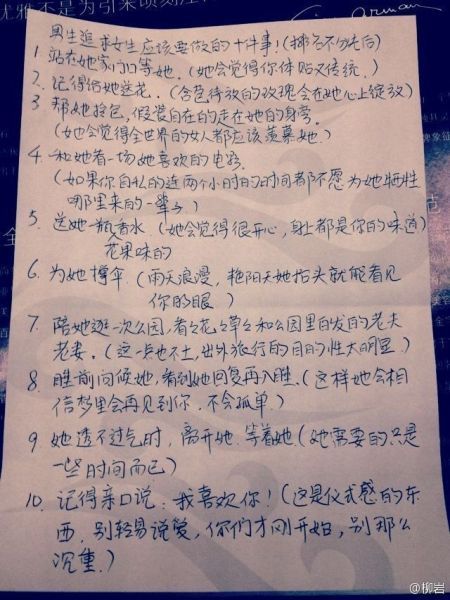 优雅不是为引来顷刻
男生追求女生应该要做的十件事！(排名不分先后)
1. 站在她家门口等她。(她会觉得你体贴又传统.)
2. 记得给她送花。(含苞待放的玫瑰会在她心上绽放)
3 帮她拎包，假装自在的走在她的身旁。
(她会觉得全世界的女人都应该羡慕她.)
4. 和她看一场她喜欢的电影.
(如果你自私的连两个小时的时间都不愿为她牺牲
哪里来的一辈子)
5. 送她一瓶香水.(她会觉得很开心,身上都是你的味道)
花果味的
6. 为她撑伞.(雨天浪漫,艳阳天她抬头就能看见
你的眼.)
7. 陪她逛一次公园,看看花花草草和公园里白发的老夫
老妻.(这一点也不土,出外旅行的目的性太明显.)
8. 睡前问候她,看到她回复再入睡.(这样她会相
信梦里会再见到你.不会孤单.)
9 她透不过气时,离开她.等着她(她需要的只是
一些时间而已)
10. 记得亲口说:我喜欢你!(这是仪式感的东
西.别轻易说爱,你们才刚开始,别那么
沉重.)
@柳岩